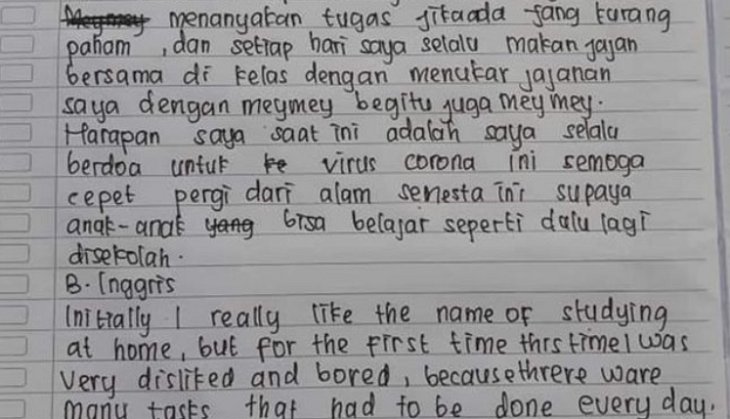 Meymey menanyakan tugas jika ada yang kurang
paham , dan setiap hari saya selalu makan jajan
bersama di kelas dengan menukar jajanan
saya dengan meymey begitu juga meymey.
Harapan saya saat ini adalah saya selalu
berdoa untuk ke virus corona ini semoga
cepet pergi dari alam semesta ini supaya
anak-anak yang bisa belajar seperti dalu lagi
disekolah.
B. Inggris
Initially I really like the name of studying
at home, but for the first time this time I was
very disliked and bored, because threre ware
many tasks that had to be done every day.